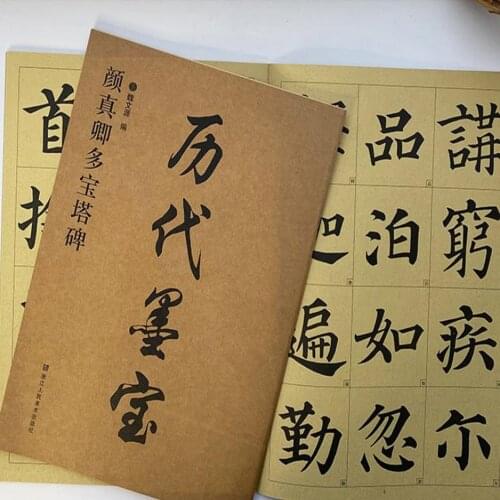 历代墨宝
颜真卿多宝塔碑
魏文源 编
浙江人民美术出版社
講窮疾尔
品泊如忽
遍勤
首